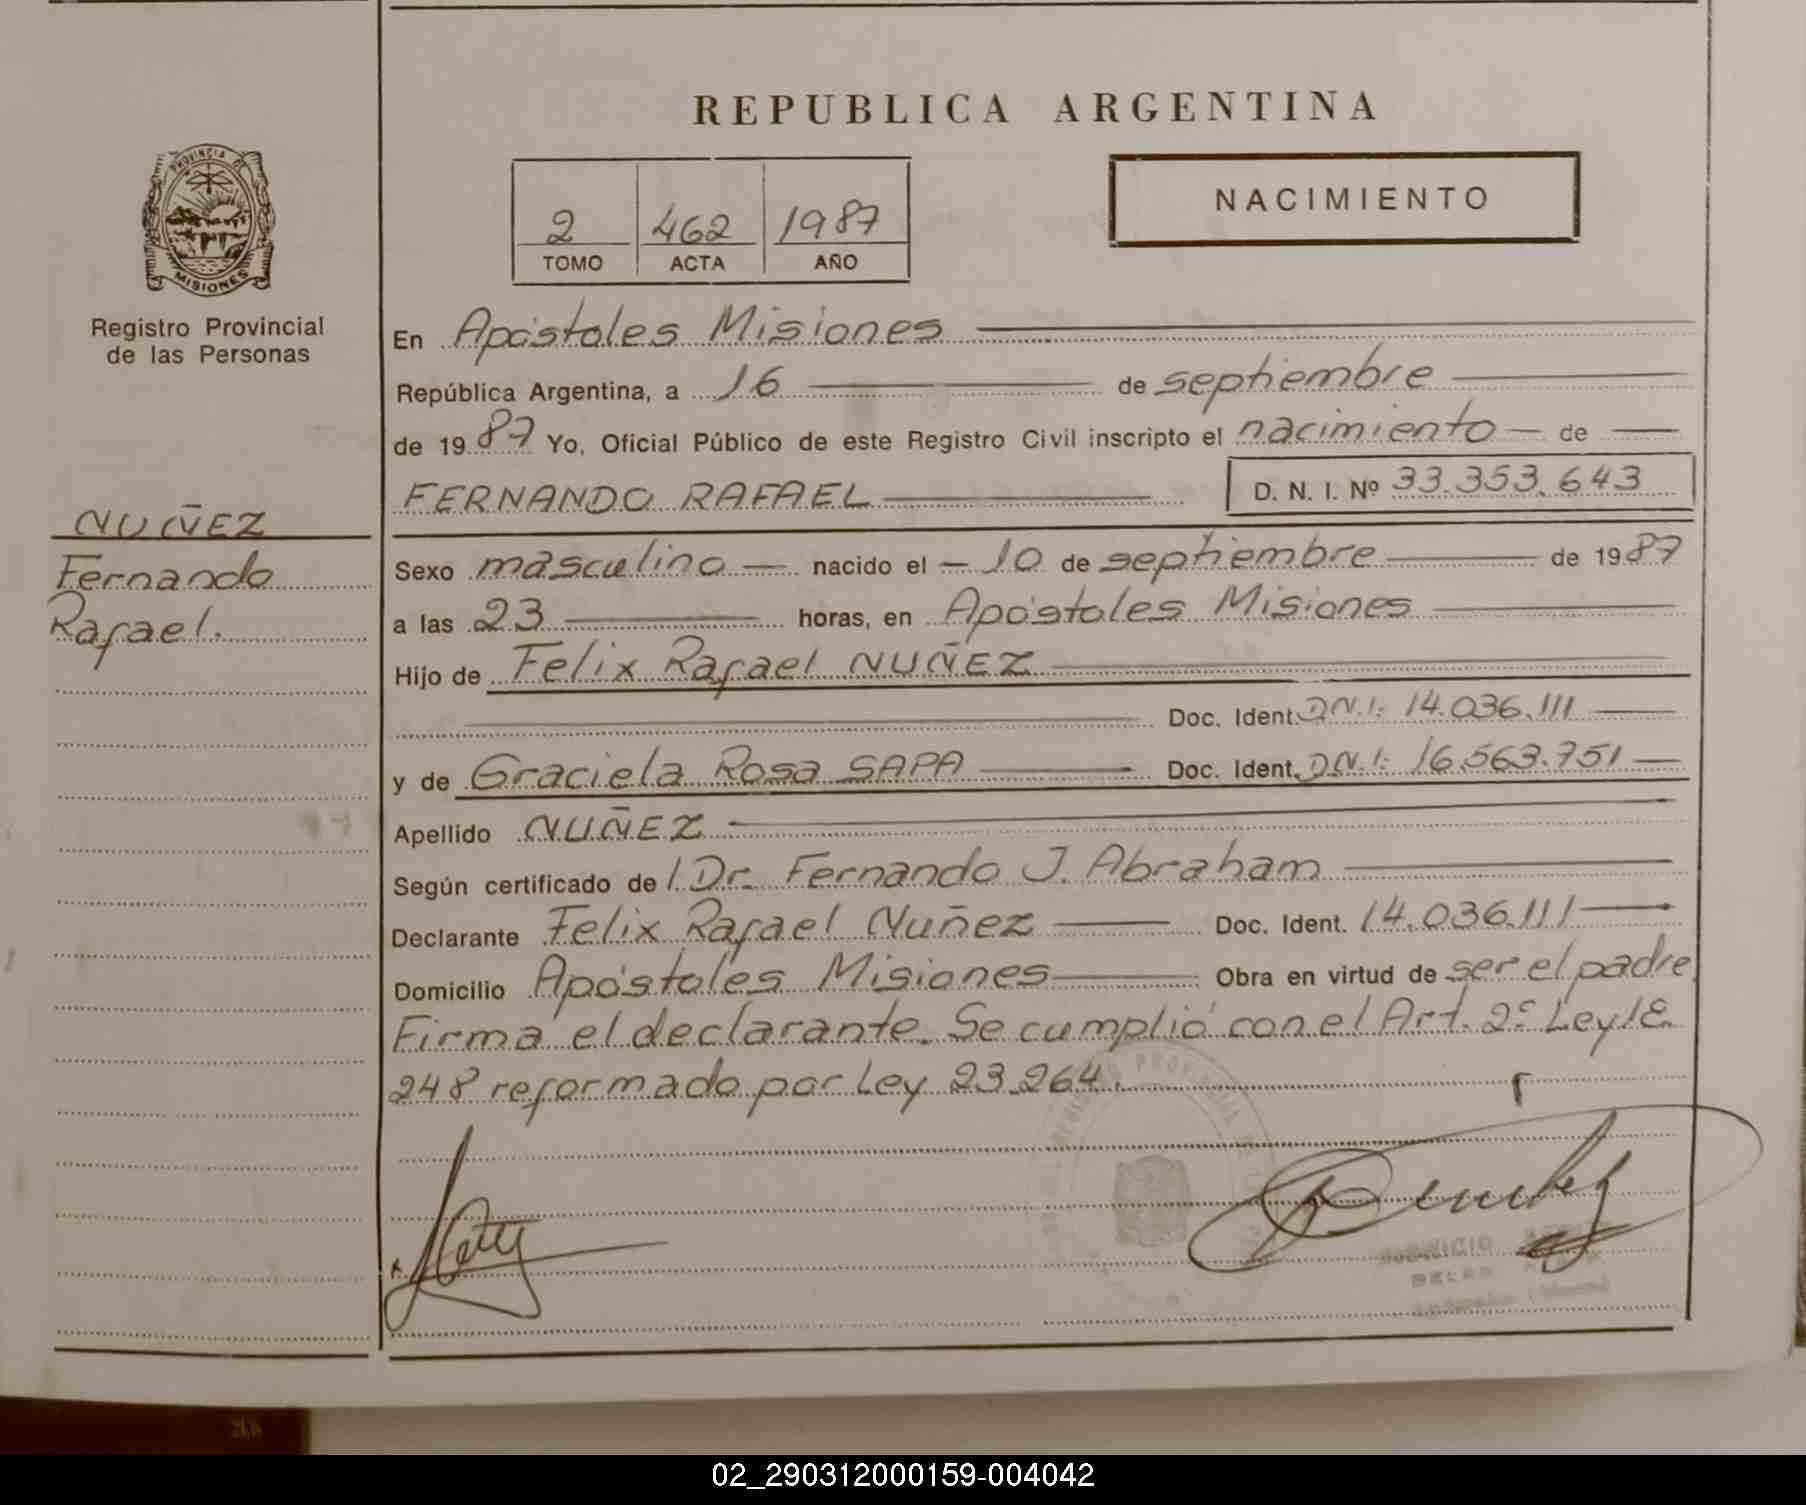 REPUBLICA ARGENTINA
PROVINCIA DE
MISIONES
Registro Provincial
de las Personas
2 462 1987
TOMO ACTA AÑO
NACIMIENTO
En Apóstoles Misiones
República Argentina, a 16 de septiembre
de 1987 Yo, Oficial Público de este Registro Civil inscripto el nacimiento de
FERNANDO RAFAEL D. N. I. Nº 33.353.643
NUÑEZ
Fernando
Rafael.
Sexo masculino nacido el 10 de septiembre de 1987
a las 23 horas, en Apóstoles Misiones
Hijo de Felix Rafael NUÑEZ
Doc. Ident. D.N.I: 14.036.111
y de Graciela Rosa SAPA Doc. Ident. D.N.I: 16.563.751
Apellido NUÑEZ
Según certificado de l Dr. Fernando J. Abraham
Declarante Felix Rafael Nuñez Doc. Ident. 14.036.111
Domicilio Apóstoles Misiones Obra en virtud de ser el padre.
Firma el declarante. Se cumplió con el Art. 2º Ley 18.
248 reformado por Ley 23.264.
02_290312000159-004042